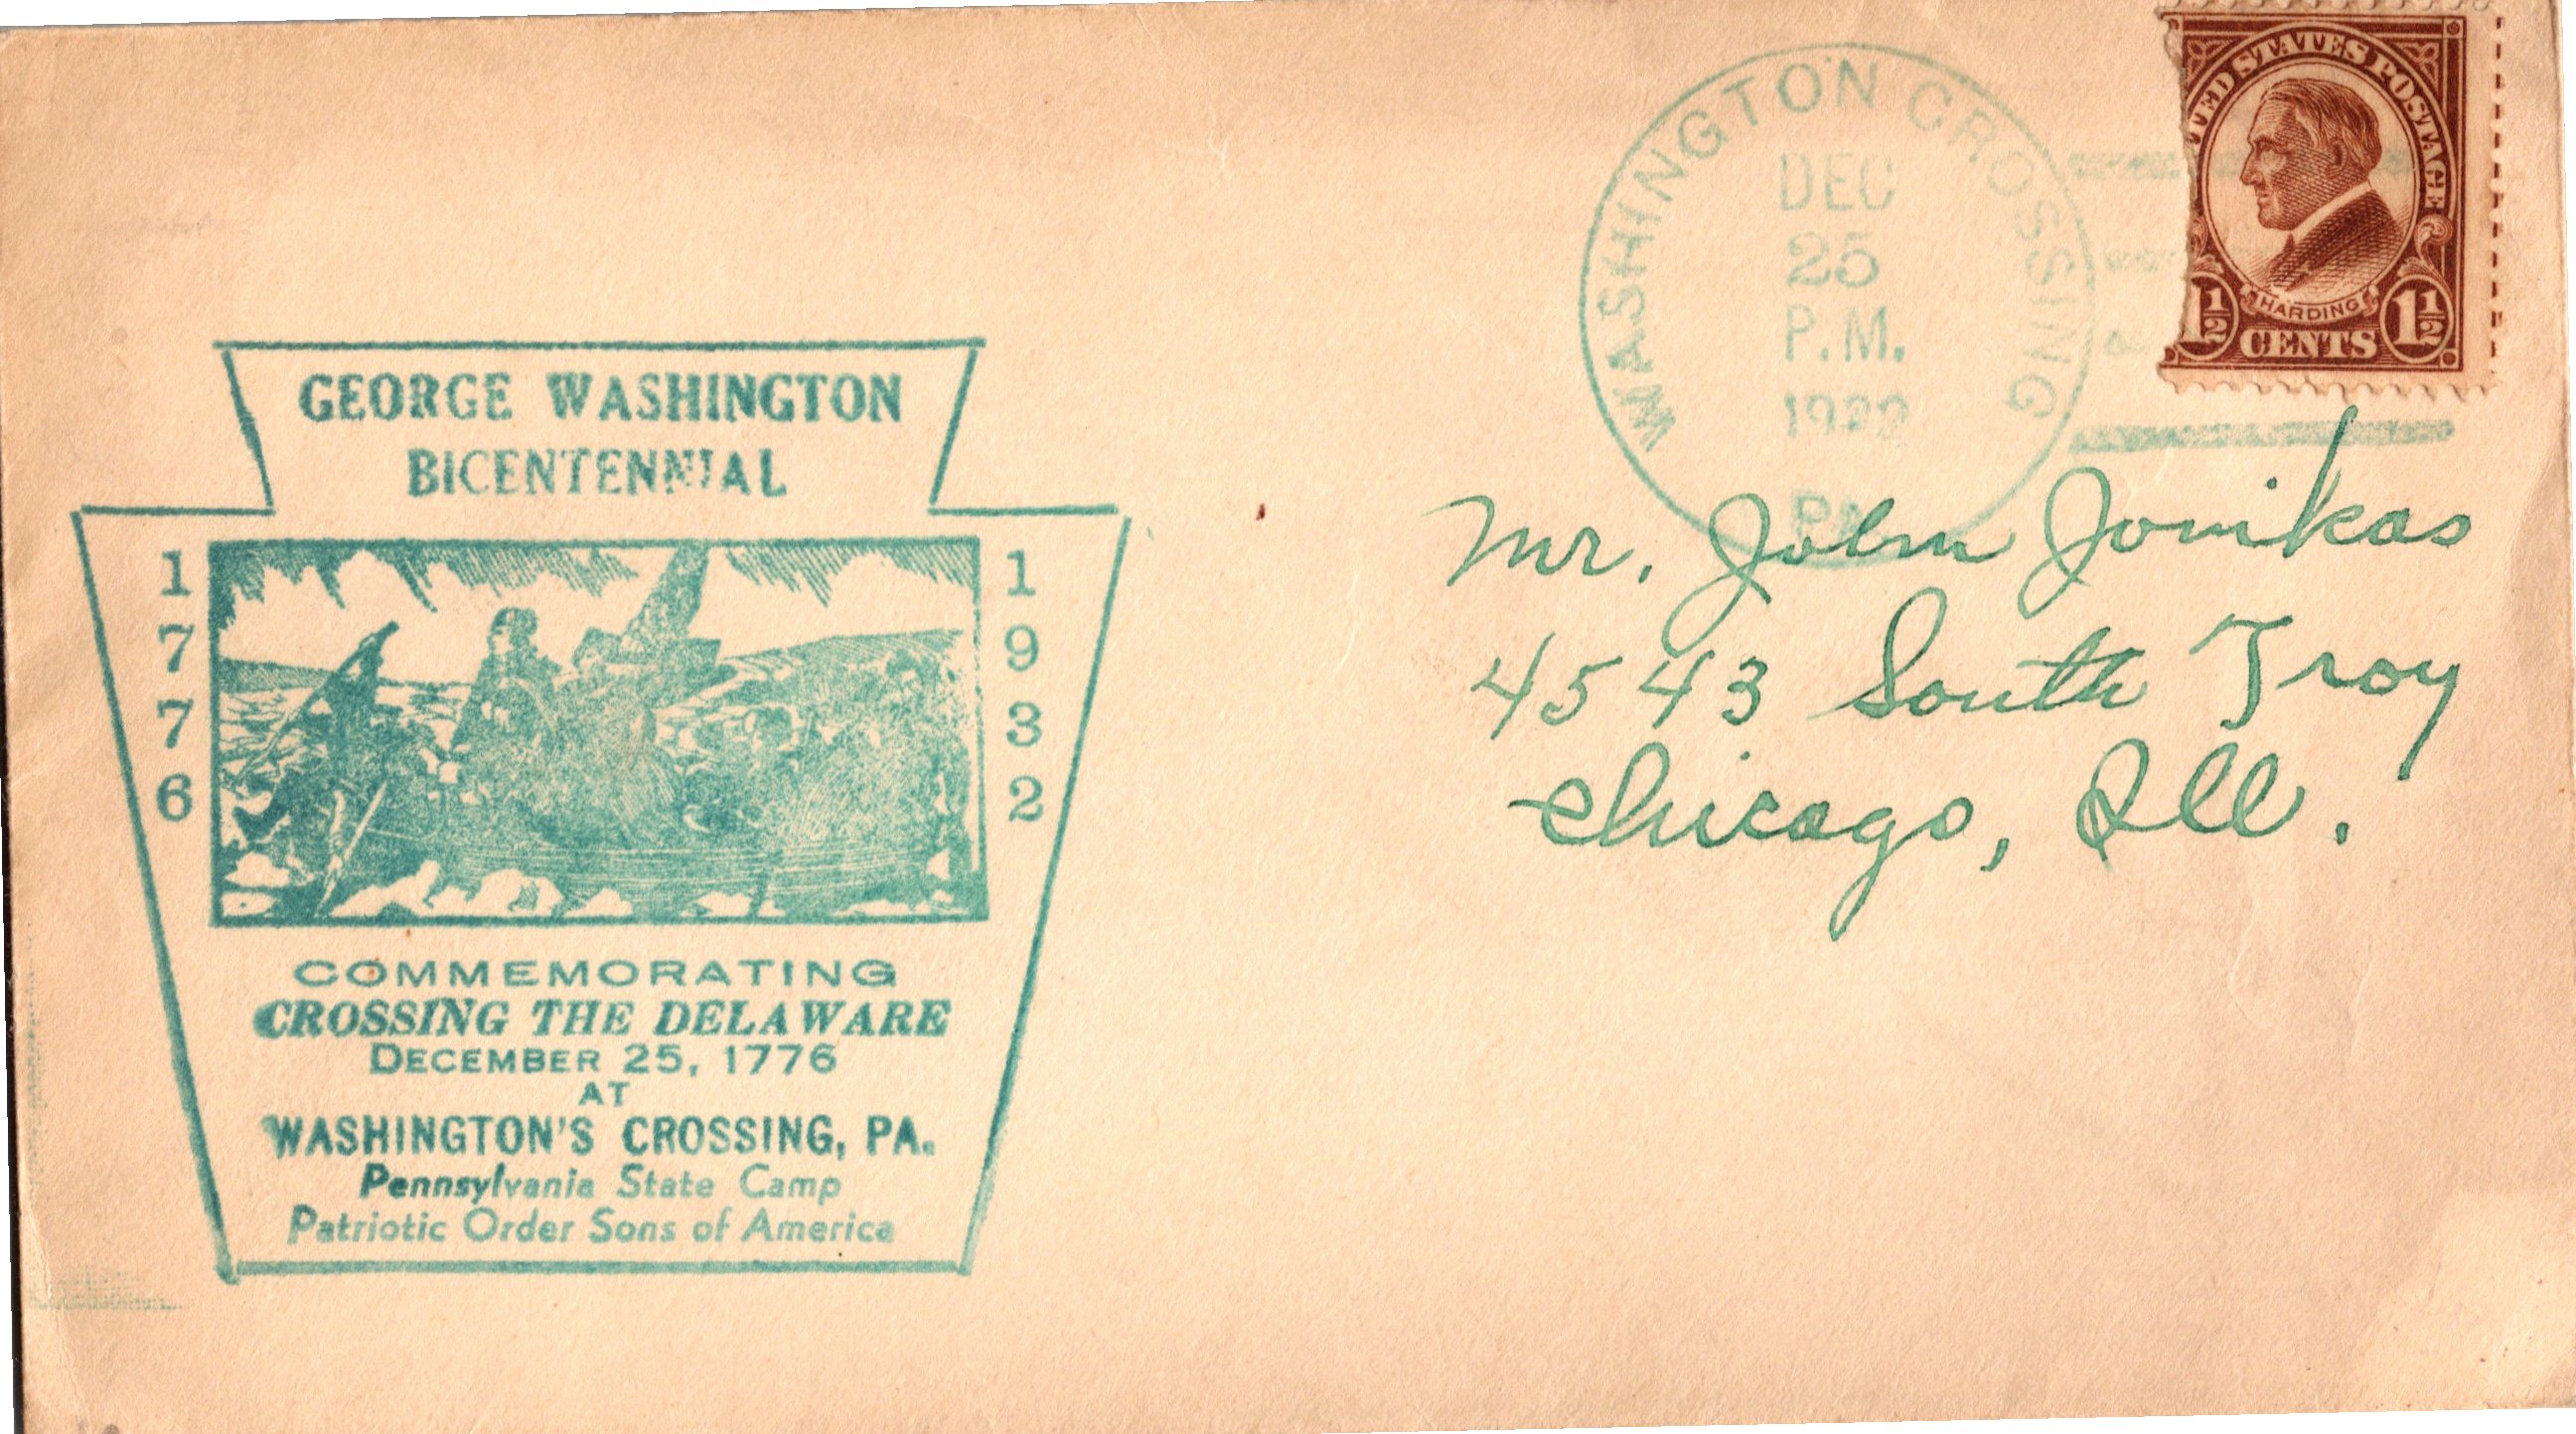 UNITED STATES POSTAGE
HARDING
1½ CENTS 1½
WASHINGTON CROSSING
DEC
25
P.M.
PA.
GEORGE WASHINGTON
BICENTENNIAL
1776
1932
COMMEMORATING
CROSSING THE DELAWARE
DECEMBER 25, 1776
AT
WASHINGTON'S CROSSING, PA.
Pennsylvania State Camp
Patriotic Order Sons of America
Mr. John Jonikas
4543 South Troy
Chicago, Ill.